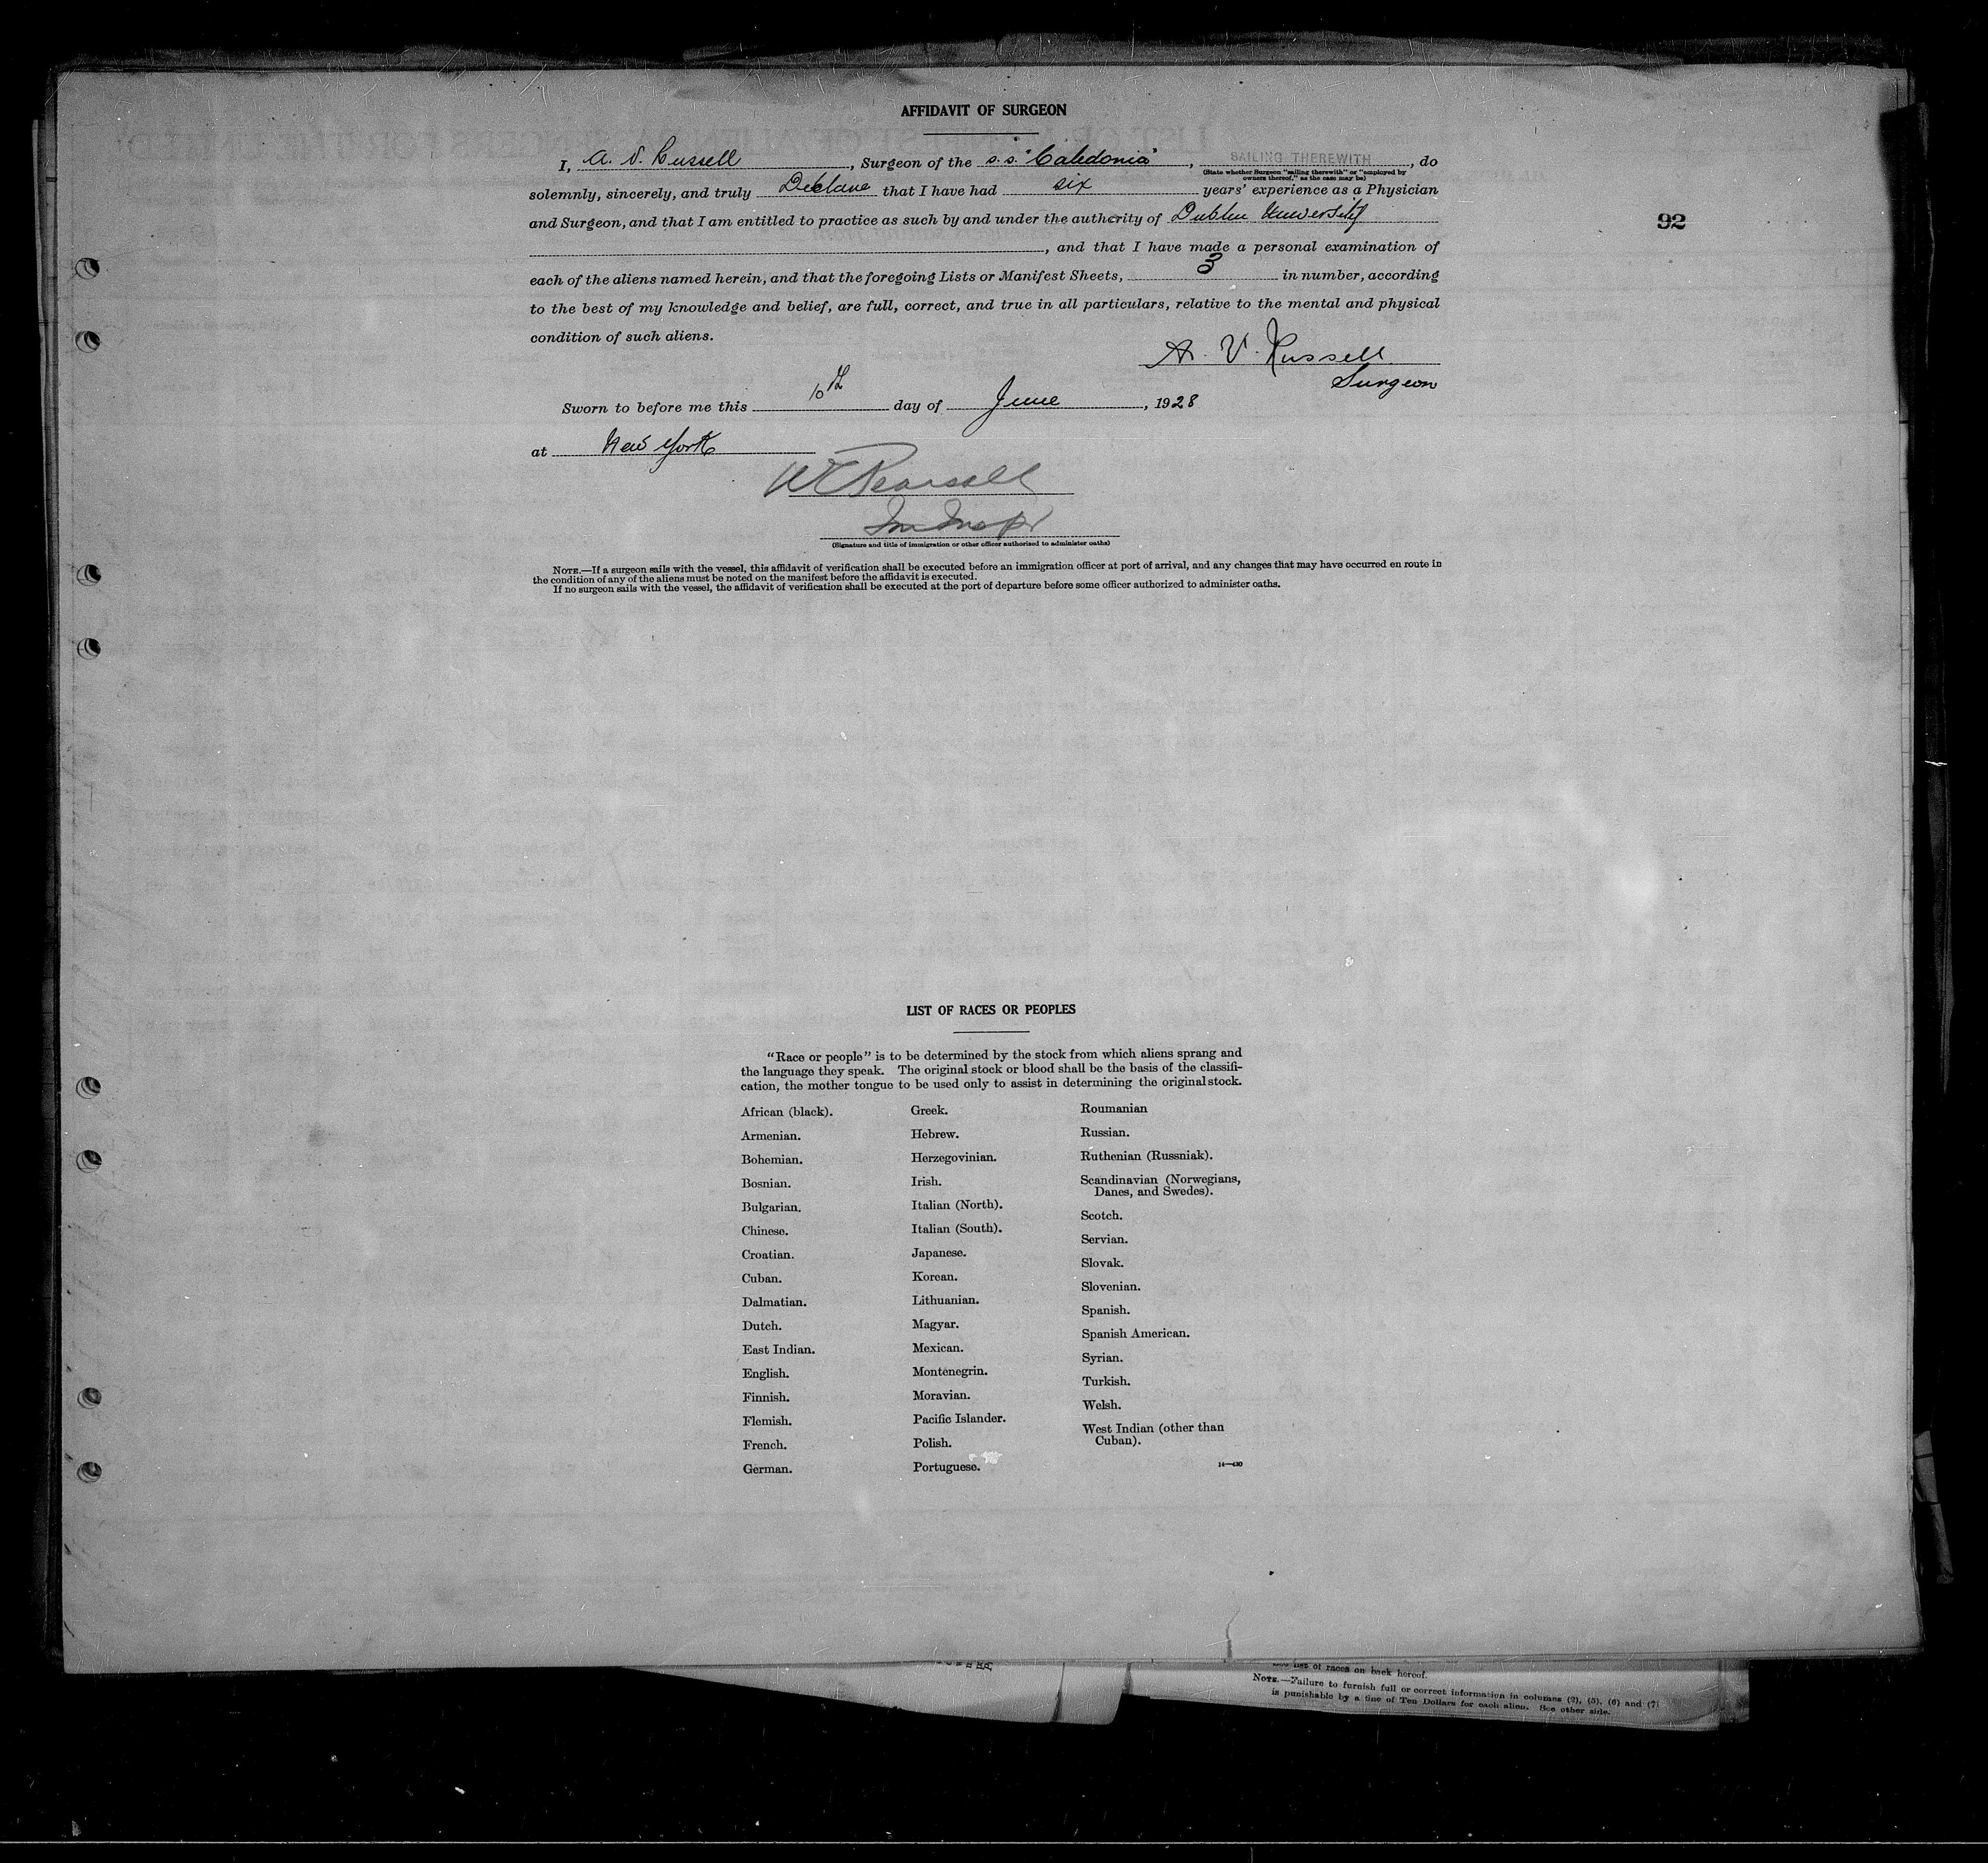 AFFIDAVIT OF SURGEON
I, A. V. Russell, Surgeon of the s.s. "Caledonia", SAILING THEREWITH, do
(State whether Surgeon "sailing therewith" or "employed by
owners thereof," as the case may be)
solemnly, sincerely, and truly Declare that I have had six years' experience as a Physician
and Surgeon, and that I am entitled to practice as such by and under the authority of Dublin University
92
, and that I have made a personal examination of
each of the aliens named herein, and that the foregoing Lists or Manifest Sheets, 3 in number, according
to the best of my knowledge and belief, are full, correct, and true in all particulars, relative to the mental and physical
condition of such aliens.
A. V. Russell
Surgeon
Sworn to before me this 10th day of June, 1928
at New York
Pearsall
Im Inspr
(Signature and title of immigration or other officer authorized to administer oaths)
NOTE.—If a surgeon sails with the vessel, this affidavit of verification shall be executed before an immigration officer at port of arrival, and any changes that may have occurred en route in
the condition of any of the aliens must be noted on the manifest before the affidavit is executed.
If no surgeon sails with the vessel, the affidavit of verification shall be executed at the port of departure before some officer authorized to administer oaths.
LIST OF RACES OR PEOPLES
"Race or people" is to be determined by the stock from which aliens sprang and
the language they speak. The original stock or blood shall be the basis of the classifi-
cation, the mother tongue to be used only to assist in determining the original stock.
African (black).
Armenian.
Bohemian.
Bosnian.
Bulgarian.
Chinese.
Croatian.
Cuban.
Dalmatian.
Dutch.
East Indian.
English.
Finnish.
Flemish.
French.
German.
Greek.
Hebrew.
Herzegovinian.
Irish.
Italian (North).
Italian (South).
Japanese.
Korean.
Lithuanian.
Magyar.
Mexican.
Montenegrin.
Moravian.
Pacific Islander.
Polish.
Portuguese.
Roumanian
Russian.
Ruthenian (Russniak).
Scandinavian (Norwegians,
Danes, and Swedes).
Scotch.
Servian.
Slovak.
Slovenian.
Spanish.
Spanish American.
Syrian.
Turkish.
Welsh.
West Indian (other than
Cuban).
14—430
list of races on back hereof.
NOTE.—Failure to furnish full or correct information in columns (2), (5), (6) and (7)
is punishable by a fine of Ten Dollars for each alien. See other side.